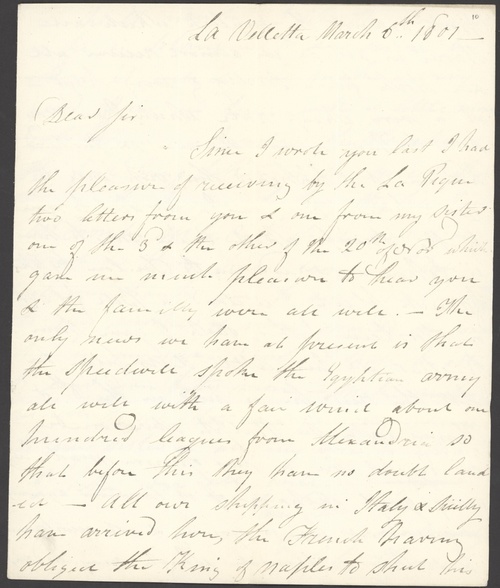 10
La Valletta March 6th 1801 —
Dear Sir
Since I wrote you last I had
the pleasure of receiving by the La Pique
two letters from you & one from my sister
one of the 3d & the other of the 20th of which
gave me much pleasure to hear you
& the familly were all well. — The
only news we have at present is that
the Speedwell spoke the Egyptian army
all well with a fair wind about one
hundred leagues from Alexandria so
that before this they have no doubt land
ed — All our shipping in Italy & Sicily
have arrived here, the French having
obliged the King of Naples to shut his